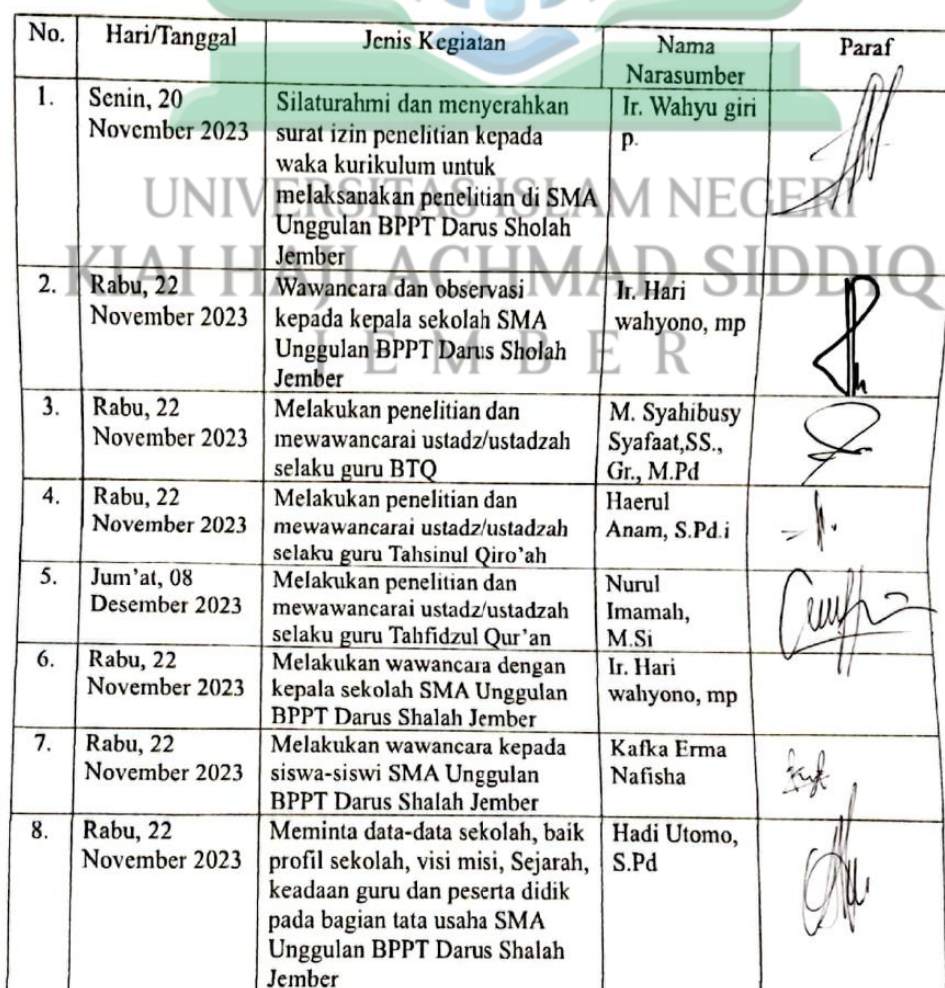 No. Hari/Tanggal Jenis Kegiatan Nama Narasumber Paraf
1. Senin, 20 November 2023
Silaturahmi dan menyerahkan
surat izin penelitian kepada
waka kurikulum untuk
melaksanakan penelitian di SMA
Unggulan BPPT Darus Sholah
Jember
Ir. Wahyu giri
p.
2. Rabu, 22
November 2023
Wawancara dan observasi
kepada kepala sekolah SMA
Unggulan BPPT Darus Sholah
Jember
Ir. Hari
wahyono, mp
3. Rabu, 22
November 2023
Melakukan penelitian dan
mewawancarai ustadz/ustadzah
selaku guru BTQ
M. Syahibusy
Syafaat,SS.,
Gr., M.Pd
4. Rabu, 22
November 2023
Melakukan penelitian dan
mewawancarai ustadz/ustadzah
selaku guru Tahsinul Qiro'ah
Haerul
Anam, S.Pd.i
5. Jum'at, 08
Desember 2023
Melakukan penelitian dan
mewawancarai ustadz/ustadzah
selaku guru Tahfidzul Qur'an
Nurul
Imamah,
M.Si
6. Rabu, 22
November 2023
Melakukan wawancara dengan
kepala sekolah SMA Unggulan
BPPT Darus Shalah Jember
Ir. Hari
wahyono, mp
7. Rabu, 22
November 2023
Melakukan wawancara kepada
siswa-siswi SMA Unggulan
BPPT Darus Shalah Jember
Kafka Erma
Nafisha
8. Rabu, 22
November 2023
Meminta data-data sekolah, baik
profil sekolah, visi misi, Sejarah,
keadaan guru dan peserta didik
pada bagian tata usaha SMA
Unggulan BPPT Darus Shalah
Jember
Hadi Utomo,
S.Pd
UNIVERSITAS ISLAM NEGERI
KIAI HAJI ACHMAD SIDDIQ
JEMBER